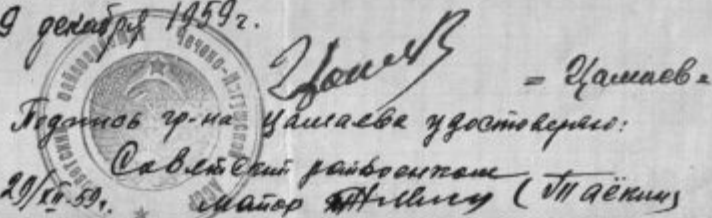 9 декабря 1959г.
= Цамаев =
Подпись гр-на Цамаева удостоверяю:
Советский райвоенком
29/XII-59г. майор (Таёкин)
Чечено-Ингушской АССР